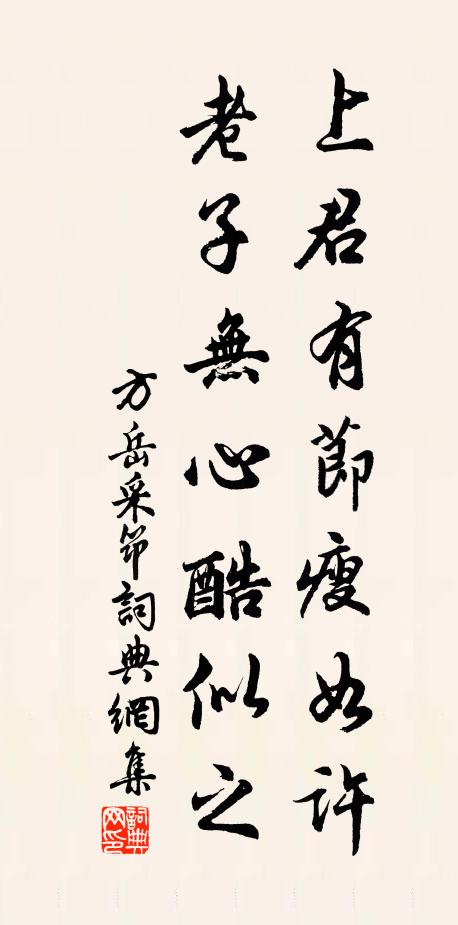 上君有節瘦如許
老子無心酷似之
方岳采節詞典網集
詞典網印